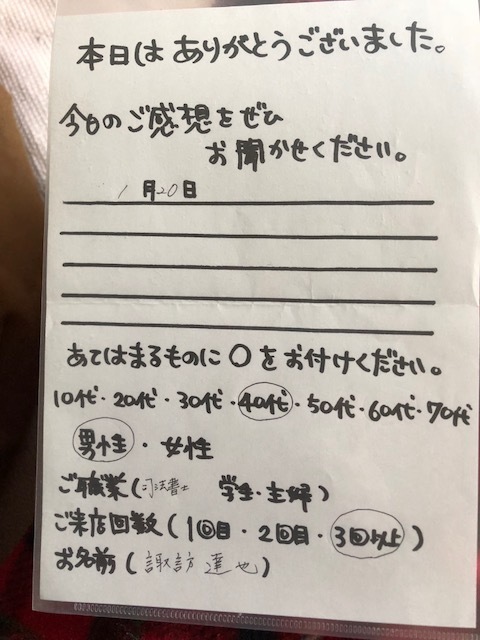 本日は ありがとうございました。
今日のご感想をぜひ
お聞かせください。
1月20日
あてはまるものに○をお付けください。
10代・20代・30代・40代・50代・60代・70代
男性・女性
ご職業(司法書士 学生・主婦)
ご来店回数(1回目・2回目・3回以上)
お名前(諏訪 達也)